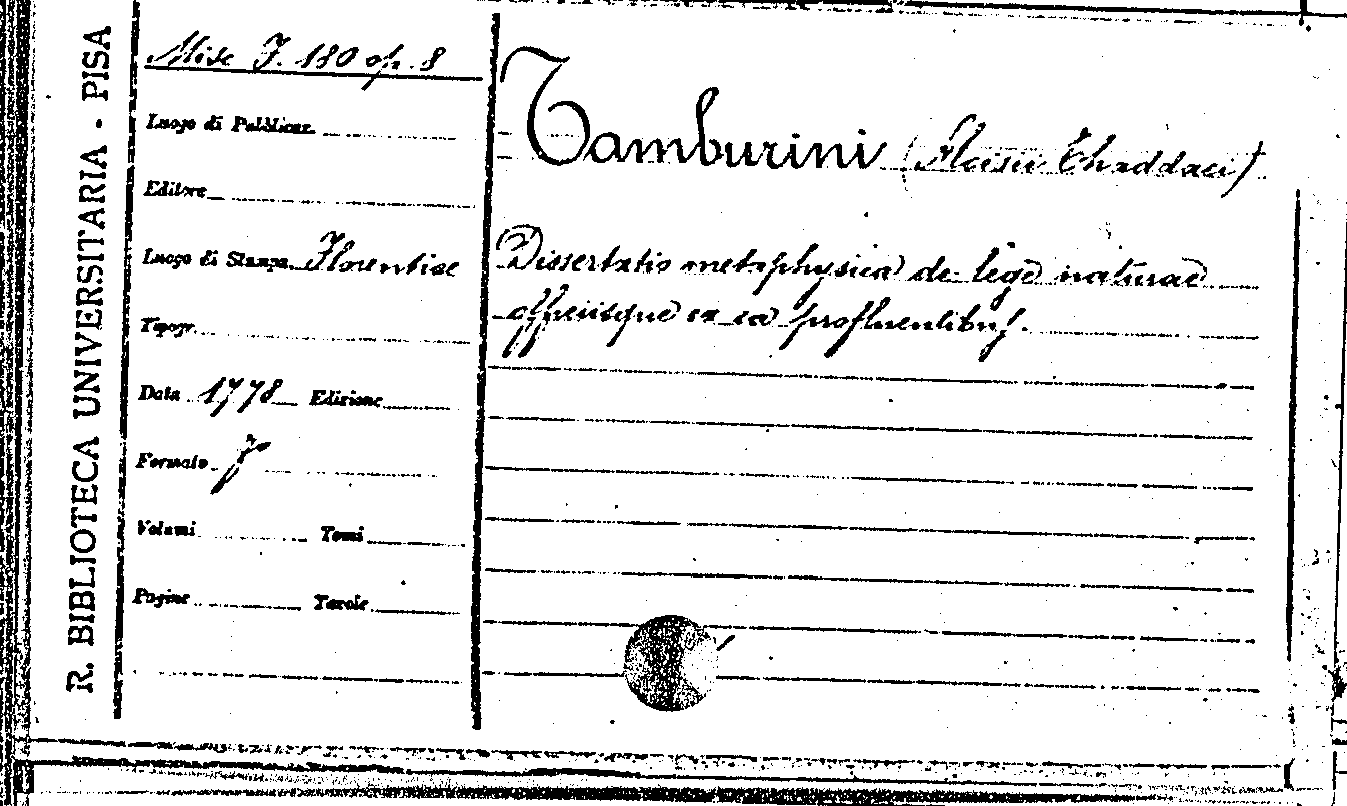 R. BIBLIOTECA UNIVERSITARIA - PISA
Misc J. 180 op. 8
Luogo di Pubblicaz.
Editore
Luogo di Stampa Florentiae
Tipogr.
Data 1778 Edizione
Formato
Volumi Tomi
Pagine Tavole
Tamburini (Aloisii Thaddaei)
Dissertatio metaphysica de lege naturae
offeciisque ex ea profluentibus.